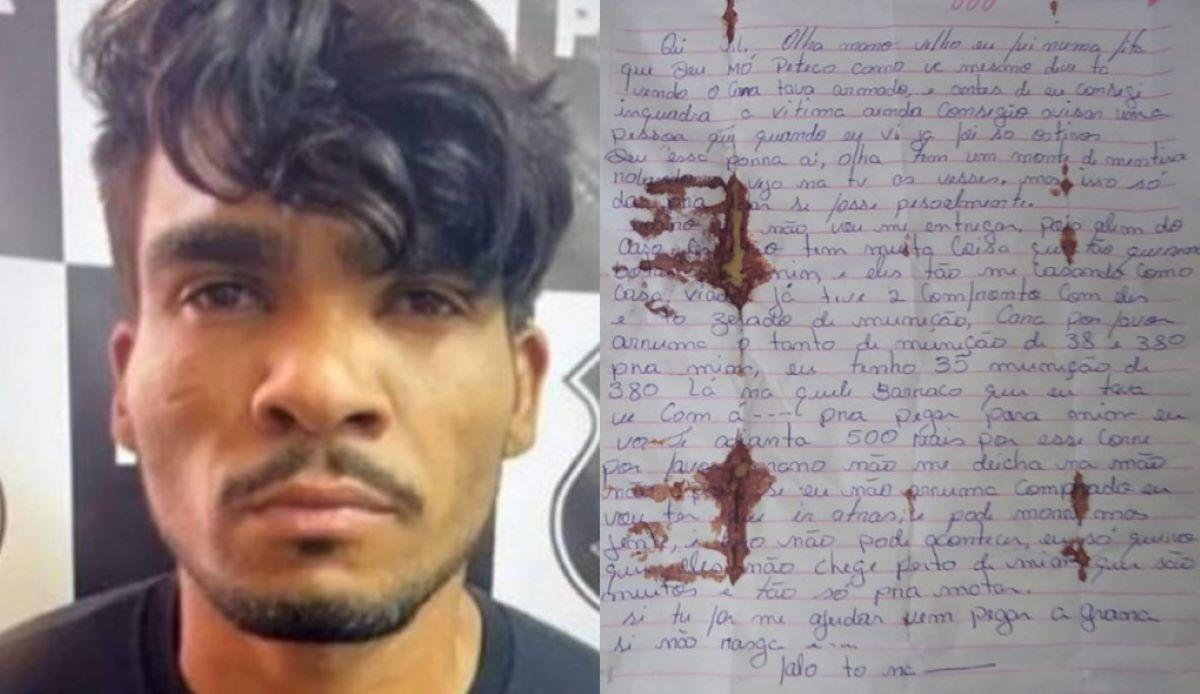 Olha mano velho eu fui numa fita
que deu mó Peteco como ve mesmo deve ta
vendo o Cara tava armado, e antes de eu consegi
inquadra a vitima ainda Consegio avisar uma
pessoa qui quando eu vi ja foi so os tiros
Deu essa porra ai, olha tem um monte de mentira
vejo na tv as vesses, mas isso só
da pra se fosse pesoalmente.
não vou me entregar, pois alem do
Caso tem muita Coisa que tão querem
mim, e eles tão me Casando como
Casa viado já tive 2 Comfronto Com eles
e to zerado de munição, Cara por favor
arruma o tanto de munição de 38 e 380
pra mim, eu tenho 35 munição de
380 Lá na queli Barraco que eu tava
ve Com á ---- pra pegar para mim eu
vou te adianta 500 mais por esse Corre
por favor mano não me deicha na mão
se eu não arruma Comprado eu
vou ter que ir atras, e pode morre mas
gente, e isso não pode acontecer, eu só quero
que eles não chege perto de mim que são
muitos e tão só pra matar.
si tu for me ajudar vem pegar a grana
si não rasga e...
falo to na